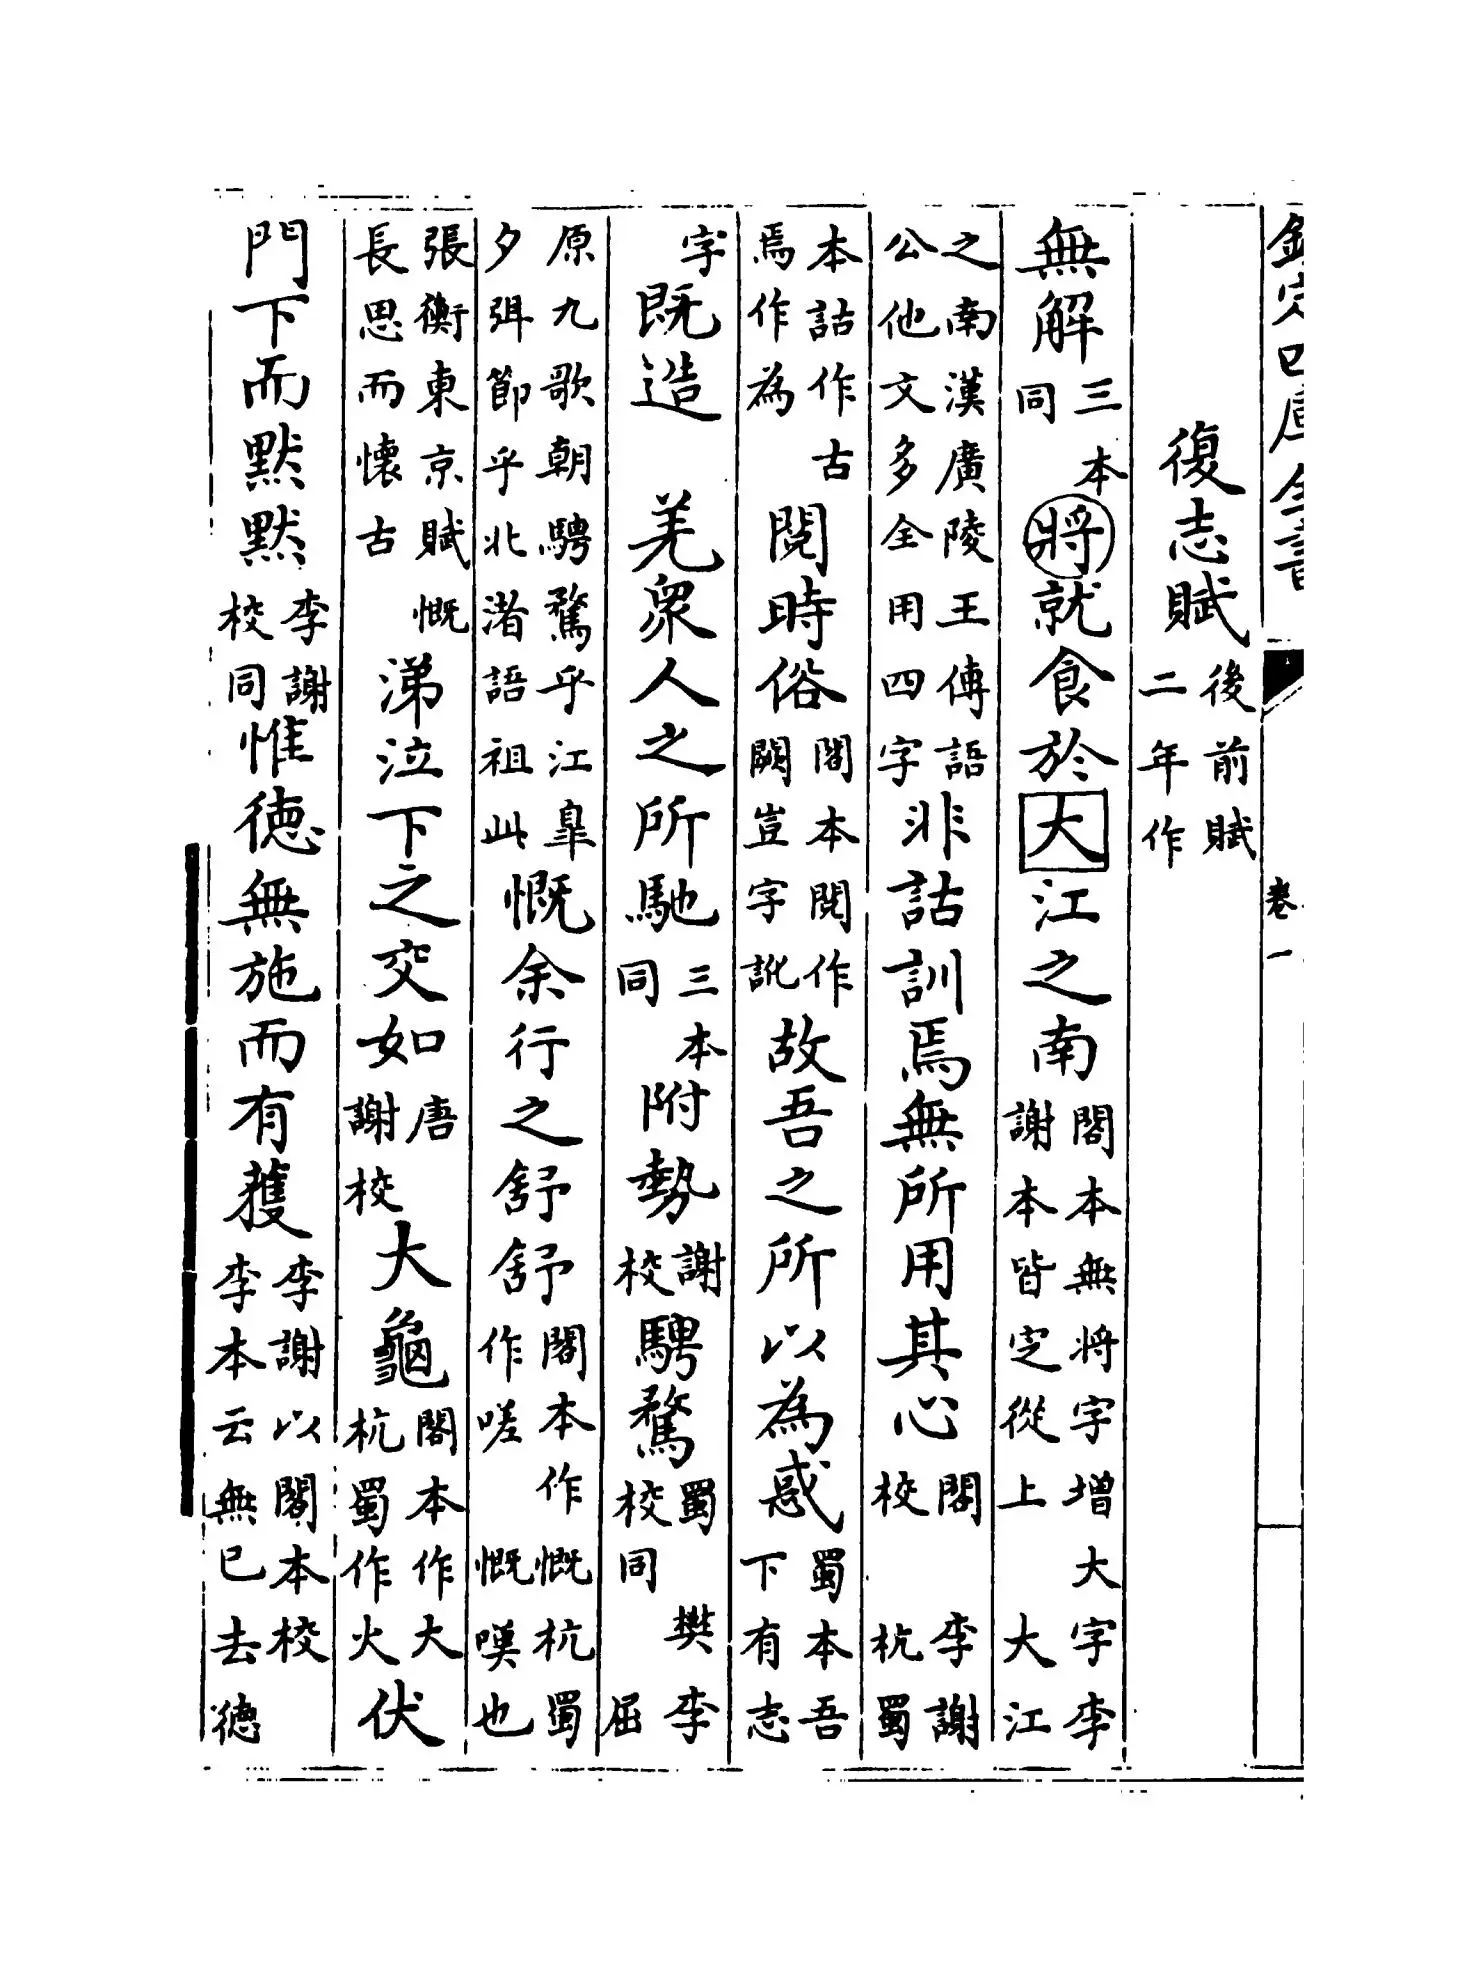 欽定四庫全書 卷一
復志賦後前賦二年作
無解三本同將就食於大江之南閣本無將字增大字李謝本皆定從上大江
之南漢廣陵王傳語公他文多全用四字非詁訓焉無所用其心閣校李謝杭蜀
本詁作古焉作為閱時俗閣本閱作闕豈字訛故吾之所以為惑蜀本吾下有志
字既造羌衆人之所馳三本同附勢謝校騁騖蜀校同樊李屈
原九歌朝騁騖乎江皐夕弭節乎北渚語祖此慨余行之舒舒閣本作作嗟慨杭蜀慨嘆也
張衡東京賦慨長思而懷古涕泣下之交如唐謝校大龜閣本作大杭蜀作火伏
門下而默默李謝校同惟德無施而有獲李謝以閣本校李本云無已去德